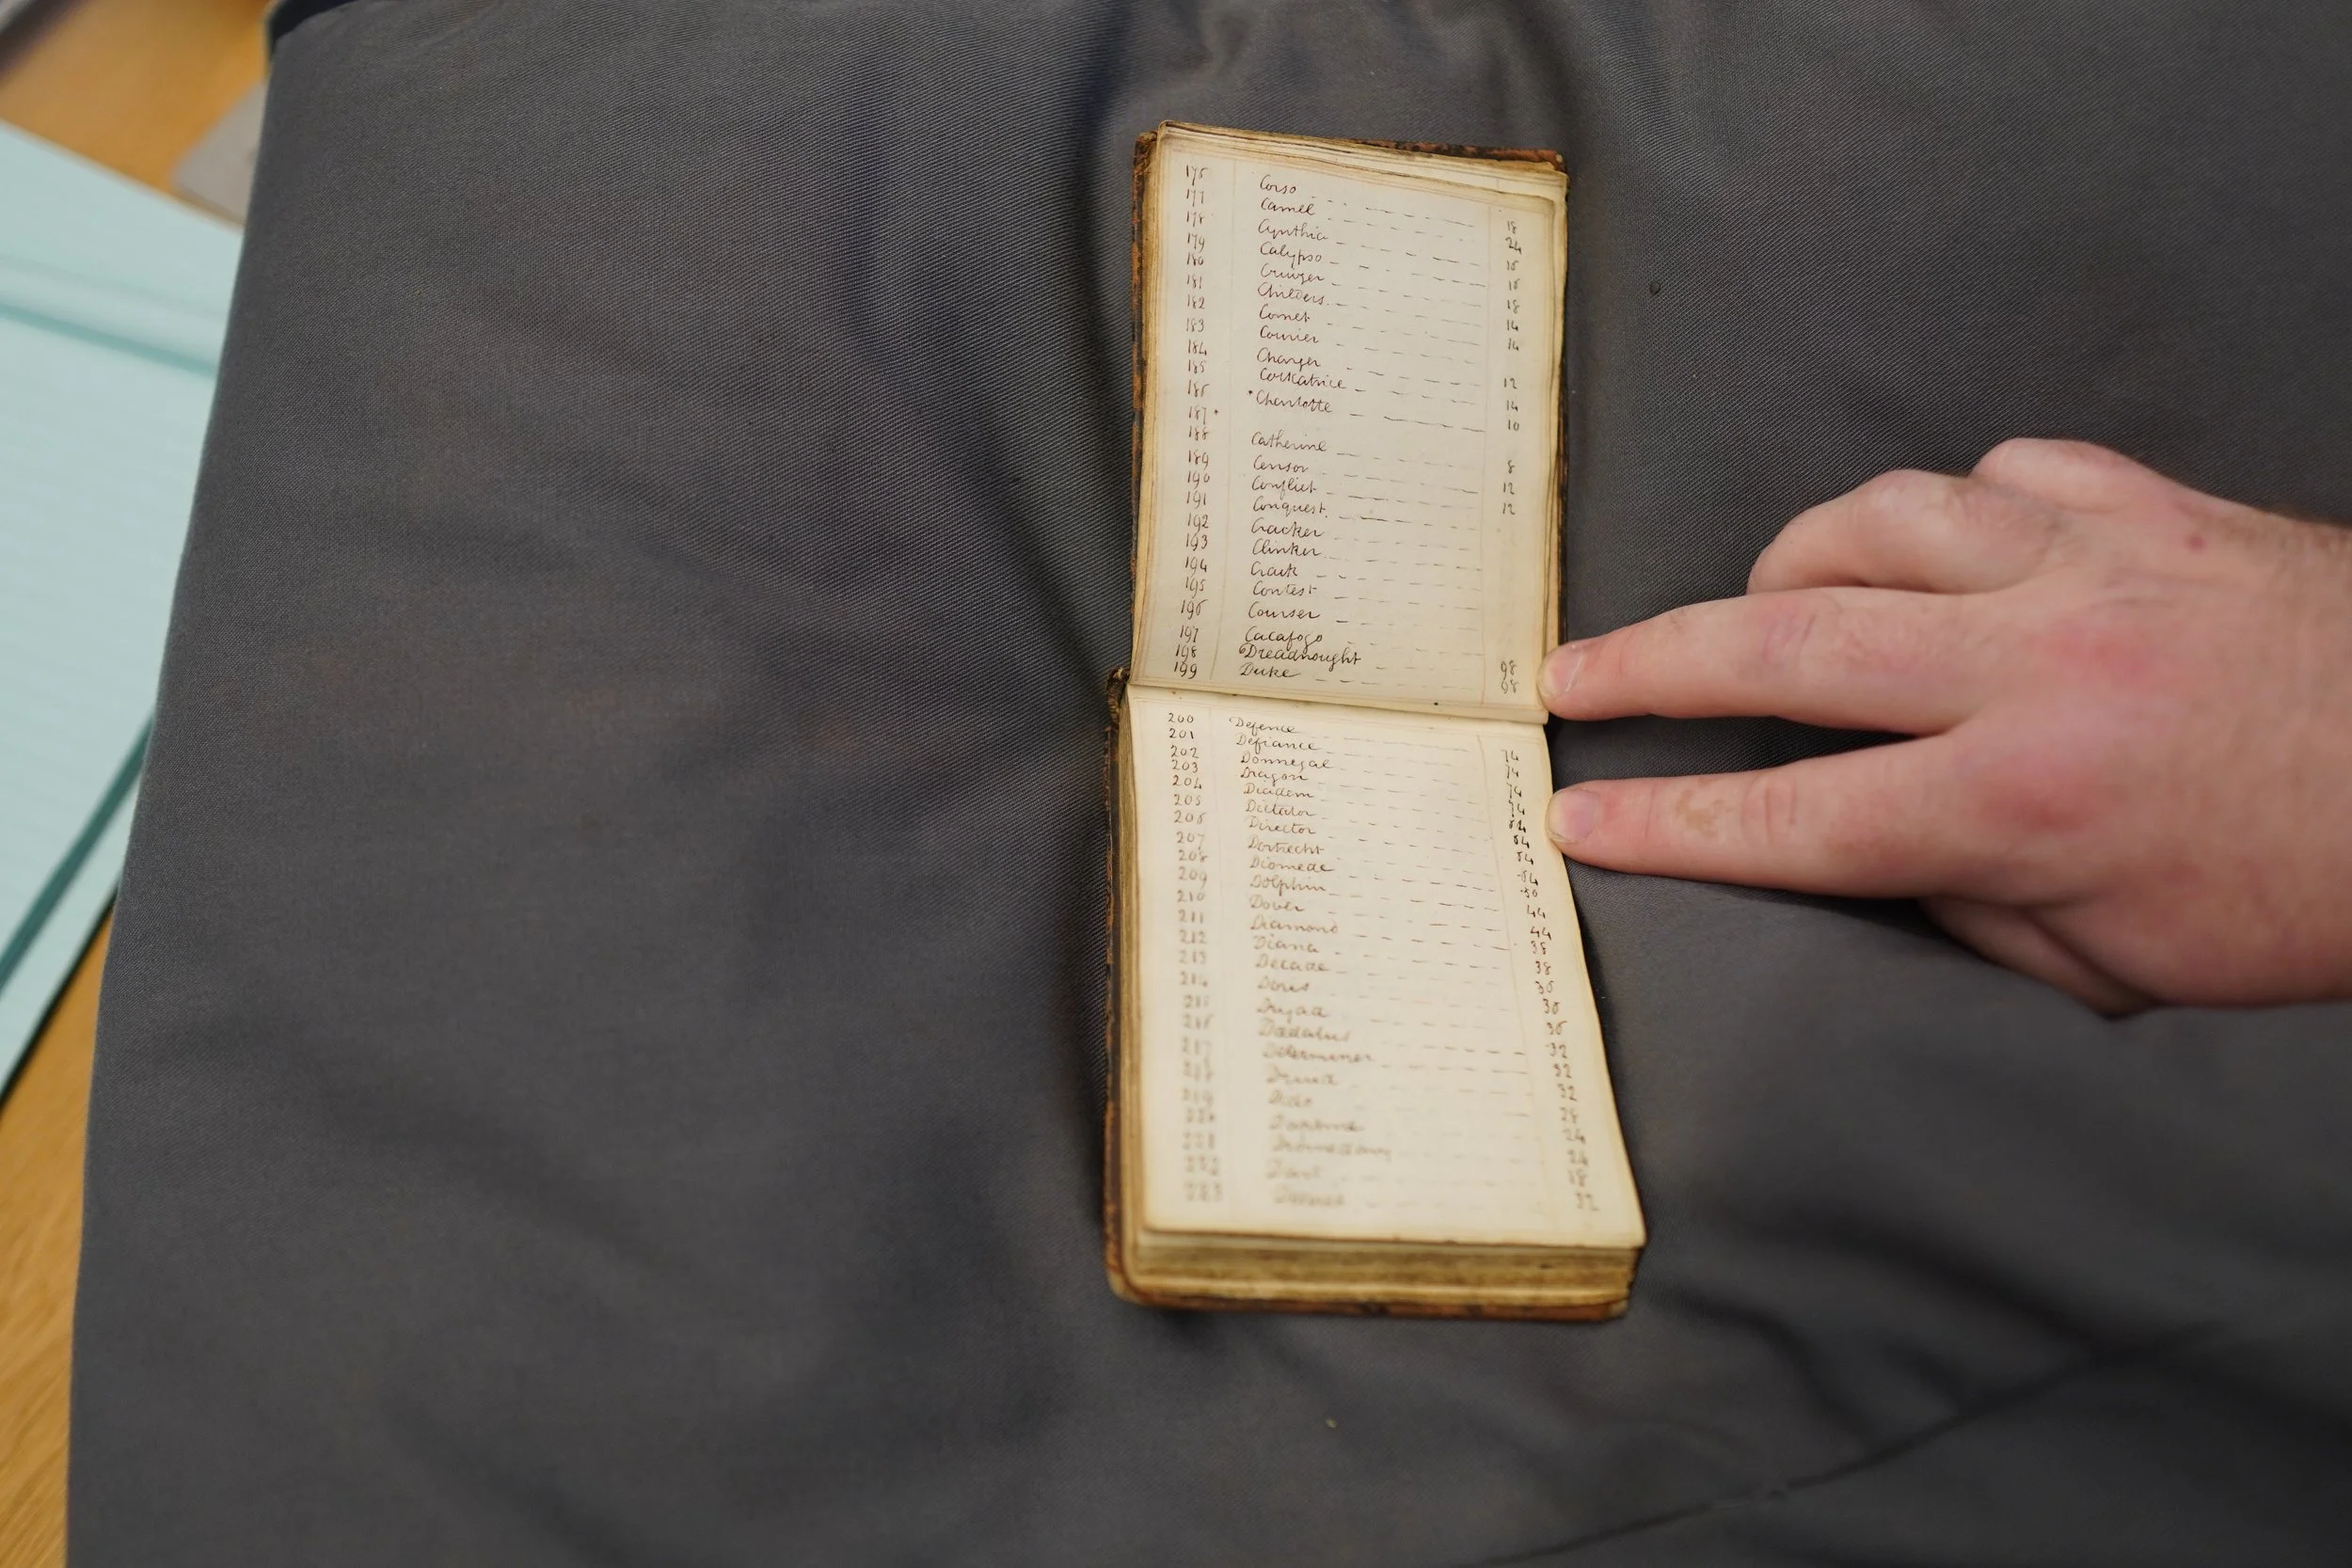 176 Corso 18
177 Camel 24
178 Cynthia 16
179 Calypso 16
180 Cruizer 18
181 Childers 14
182 Comet 14
183 Courier
184 Charger 12
185 Cockatrice 14
186 Charlotte 10
187
188 Catherine 8
189 Censor 12
190 Conflict 12
191 Conquest
192 Cracker
193 Clinker
194 Crash
195 Contest
196 Courser
197 Cacafogo
198 Dreadnought 98
199 Duke 98
200 Defence 74
201 Defiance 74
202 Donnegal 74
203 Dragon 74
204 Diadem 64
205 Dictator 64
206 Director 64
207 Dortrecht 64
208 Diomede 50
209 Dolphin 44
210 Dover 44
211 Diamond 38
212 Diana 38
213 Decade 36
214 Doris 36
215 Dryad 36
216 Dædalus 32
217 Determinee 32
218 Druid 32
219 Dido 28
220 Daphne 24
221 Dromedary 24
222 Dart 18
223 32